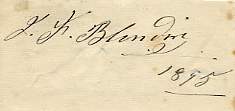 J. F. Blondin
1895